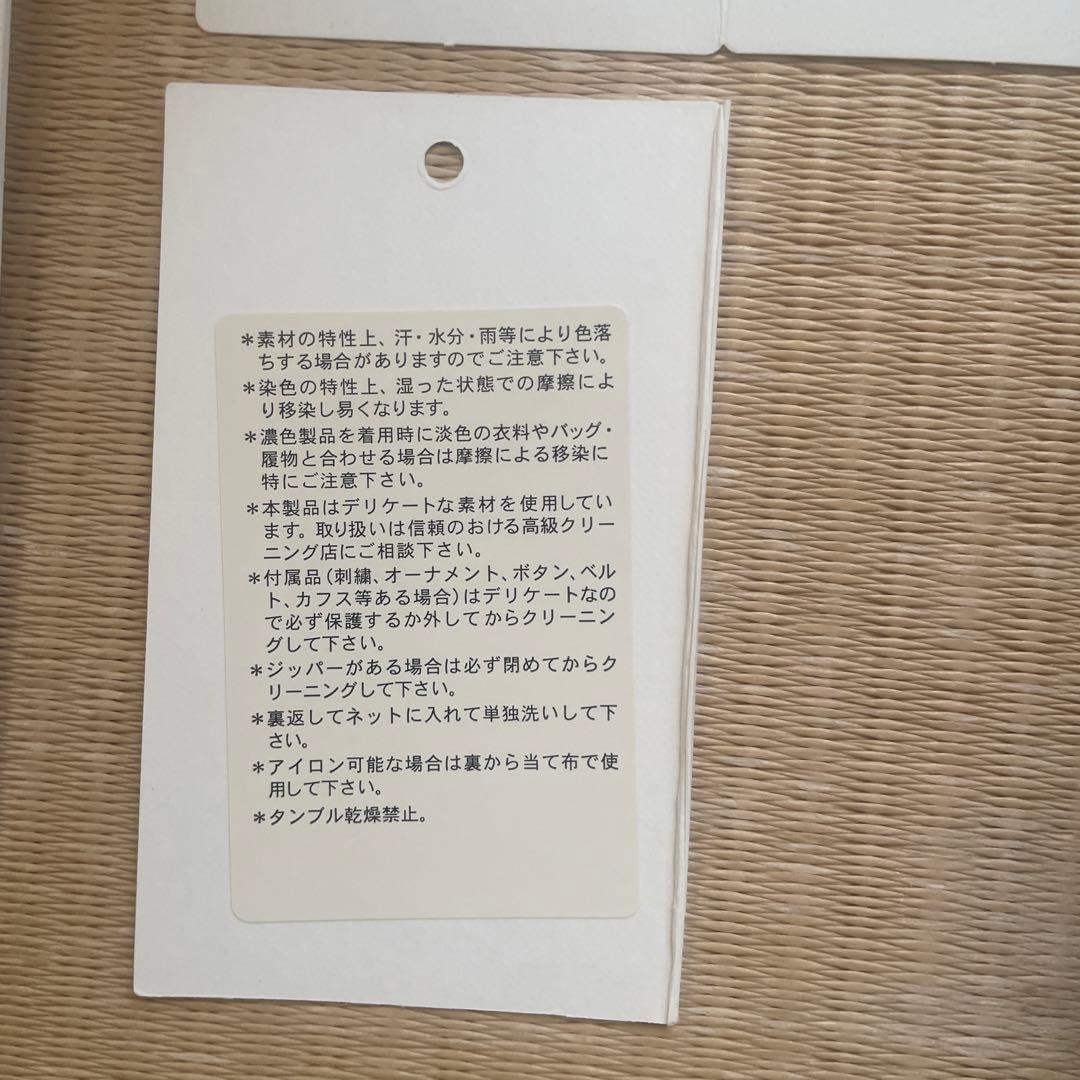 ＊素材の特性上、汗・水分・雨等により色落
ちする場合がありますのでご注意下さい。
＊染色の特性上、湿った状態での摩擦によ
り移染し易くなります。
＊濃色製品を着用時に淡色の衣料やバッグ・
履物と合わせる場合は摩擦による移染に
特にご注意下さい。
＊本製品はデリケートな素材を使用してい
ます。取り扱いは信頼のおける高級クリー
ニング店にご相談下さい。
＊付属品(刺繍、オーナメント、ボタン、ベル
ト、カフス等ある場合)はデリケートなの
で必ず保護するか外してからクリーニン
グして下さい。
＊ジッパーがある場合は必ず閉めてからク
リーニングして下さい。
＊裏返してネットに入れて単独洗いして下
さい。
＊アイロン可能な場合は裏から当て布で使
用して下さい。
＊タンブル乾燥禁止。